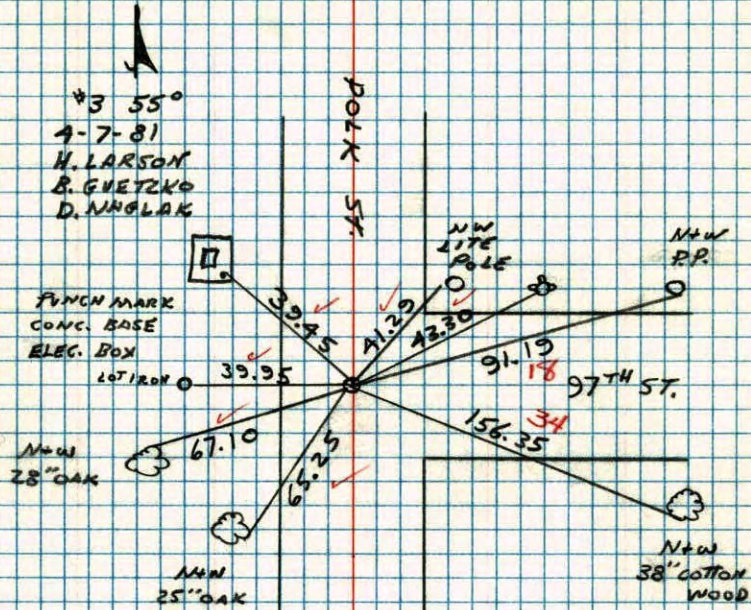 #3 55°
4-7-81
H. LARSON
B. GUETZKO
D. NAGLAK
POLK ST.
NW
LITE
POLE
N+W
P.P.
PUNCH MARK
CONC. BASE
ELEC. BOX
39.45
41.29
43.30
91.19
18
97TH ST.
LOT IRON
39.95
67.10
65.25
156.35
34
N+W
28" OAK
N+N
25" OAK
N+W
38" COTTON
WOOD